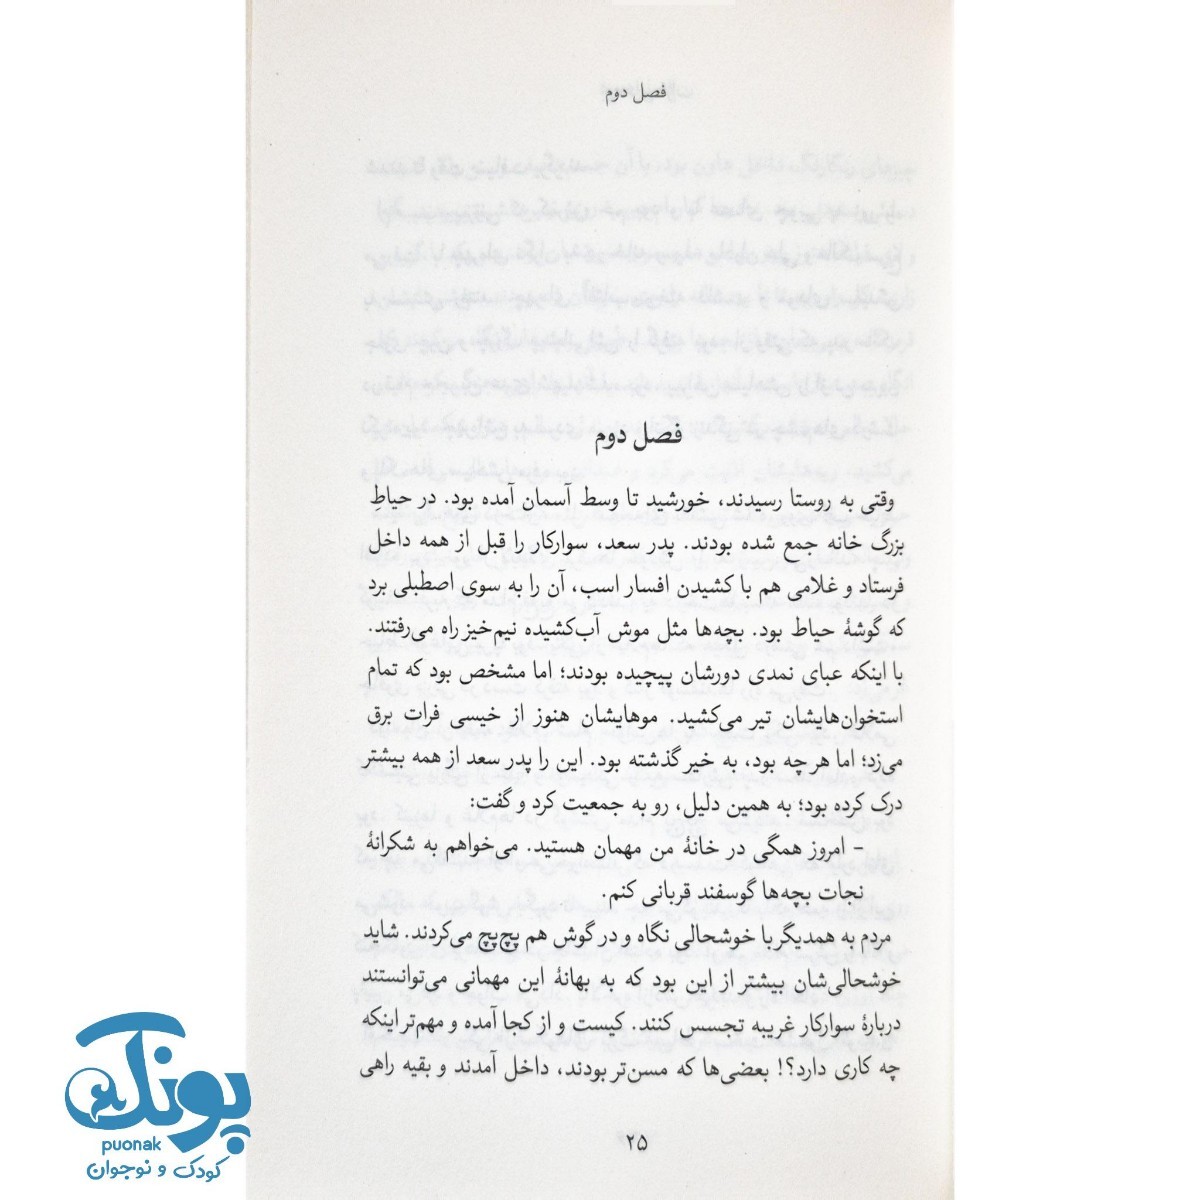 فصل دوم
فصل دوم
وقتی به روستا رسیدند، خورشید تا وسط آسمان آمده بود. در حیاطِ
بزرگ خانه جمع شده بودند. پدر سعد، سوارکار را قبل از همه داخل
فرستاد و غلامی هم با کشیدن افسار اسب، آن را به سوی اصطبلی برد
که گوشهٔ حیاط بود. بچه‌ها مثل موش آب‌کشیده نیم‌خیز راه می‌رفتند.
با اینکه عبای نمدی دورشان پیچیده بودند؛ اما مشخص بود که تمام
استخوان‌هایشان تیر می‌کشید. موهایشان هنوز از خیسی فرات برق
می‌زد؛ اما هر چه بود، به خیر گذشته بود. این را پدر سعد از همه بیشتر
درک کرده بود؛ به همین دلیل، رو به جمعیت کرد و گفت:
- امروز همگی در خانهٔ من مهمان هستید. می‌خواهم به شکرانهٔ
نجات بچه‌ها گوسفند قربانی کنم.
مردم به همدیگر با خوشحالی نگاه و در گوش هم پچ‌پچ می‌کردند. شاید
خوشحالی‌شان بیشتر از این بود که به بهانهٔ این مهمانی می‌توانستند
دربارهٔ سوارکار غریبه تجسس کنند. کیست و از کجا آمده و مهم‌تر اینکه
چه کاری دارد؟! بعضی‌ها که مسن‌تر بودند، داخل آمدند و بقیه راهی
۲۵
پونک
puonak
کودک و نوجوان